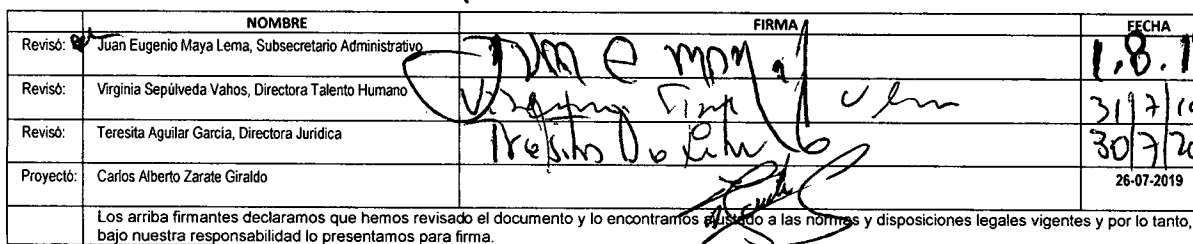 NOMBRE FIRMA FECHA
Revisó: Juan Eugenio Maya Lema, Subsecretario Administrativo 1.8.1
Revisó: Virginia Sepúlveda Vahos, Directora Talento Humano 31/7/
Revisó: Teresita Aguilar García, Directora Jurídica 30/7/20
Proyectó: Carlos Alberto Zarate Giraldo 26-07-2019
Los arriba firmantes declaramos que hemos revisado el documento y lo encontramos ajustado a las normas y disposiciones legales vigentes y por lo tanto,
bajo nuestra responsabilidad lo presentamos para firma.